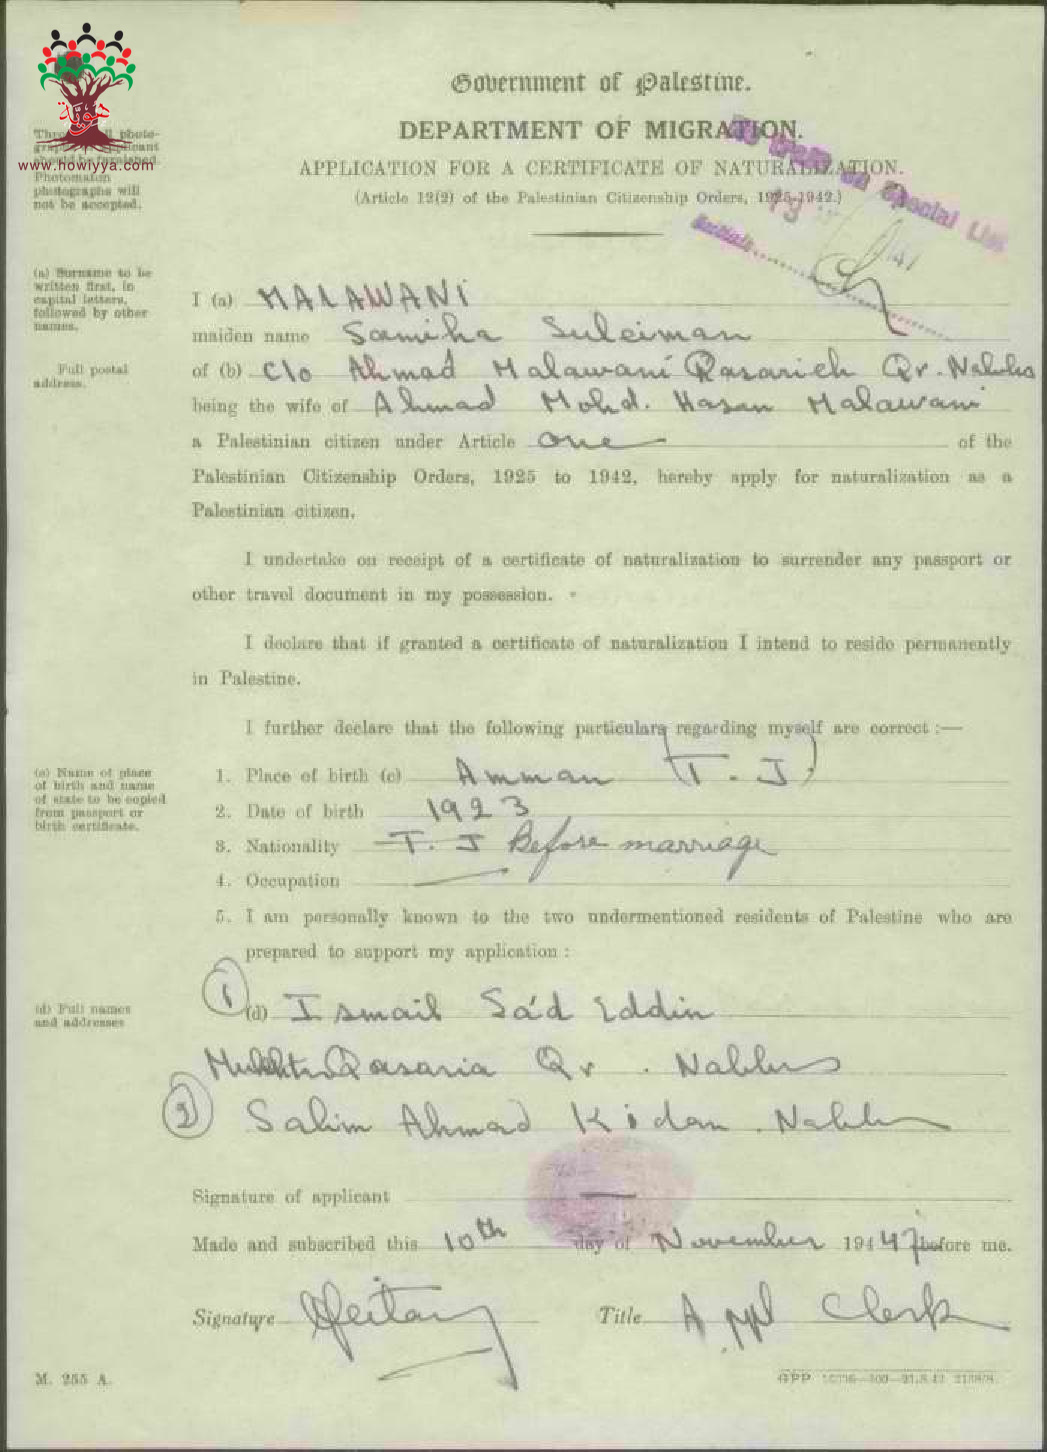 هوية
www.howiyya.com
Government of Palestine.
DEPARTMENT OF MIGRATION.
APPLICATION FOR A CERTIFICATE OF NATURALIZATION.
(Article 12(2) of the Palestinian Citizenship Orders, 1925-1942.)
Special List
Three photographs applicant should be furnished
Photomaton
photographs will
not be accepted.
(a) Surname to be
written first, in
capital letters,
followed by other
names.
I (a) MALAWANI
maiden name Samiha Suleiman
Full postal
address.
of (b) c/o Ahmad Malawani Qasarieh Qr. Nablus
being the wife of Ahmad Mohd. Hasan Malawani
a Palestinian citizen under Article one of the
Palestinian Citizenship Orders, 1925 to 1942, hereby apply for naturalization as a
Palestinian citizen.
I undertake on receipt of a certificate of naturalization to surrender any passport or
other travel document in my possession.
I declare that if granted a certificate of naturalization I intend to reside permanently
in Palestine.
I further declare that the following particulars regarding myself are correct :—
(c) Name of place
of birth and name
of state to be copied
from passport or
birth certificate.
1. Place of birth (c) Amman (T. J)
2. Date of birth 1923
3. Nationality T. J Before marriage
4. Occupation
5. I am personally known to the two undermentioned residents of Palestine who are
prepared to support my application :
(d) Full names
and addresses
1 (d) Ismail Sa'd Eddin
Mukhtar Qasaria Qr. Nablus
2 Salim Ahmad Kidan. Nablus
Signature of applicant
Made and subscribed this 10th day of November 1947 before me.
Signature
Title Appl Clerk
M. 255 A.
GPP